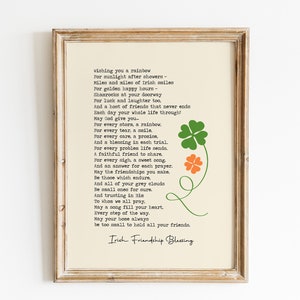 wishing you a rainbow
For sunlight after showers -
Miles and miles of Irish smiles
For golden happy hours -
Shamrocks at your doorway
For luck and laughter too,
And a host of friends that never ends
Each day your whole life through!
May God give you..
For every storm, a rainbow,
For every tear, a smile,
For every care, a promise,
And a blessing in each trial.
For every problem life sends,
A faithful friend to share,
For every sigh, a sweet song,
And an answer for each prayer.
May the friendships you make,
Be those which endure,
And all of your grey clouds
Be small ones for sure.
And trusting in Him
To whom we all pray,
May a song fill your heart,
Every step of the way.
May your home always
be too small to hold all your friends.
Irish Friendship Blessing